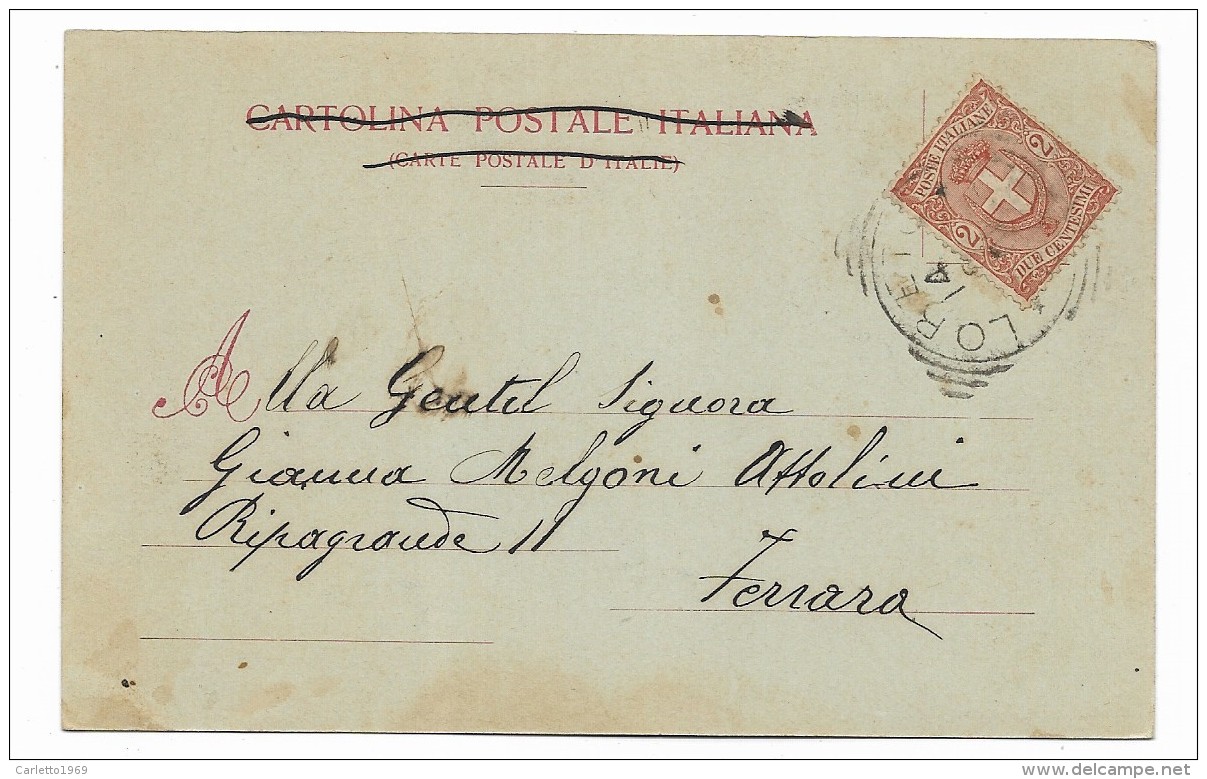 CARTOLINA POSTALE ITALIANA
(CARTE POSTALE D'ITALIE)
POSTE ITALIANE
2
2
DUE CENTESIMI
LORETO
14
Alla Gentil Signora
Gianna Melgoni Attolini
Ripagrande 11
Ferrara
Carletto1969
delcampe.net